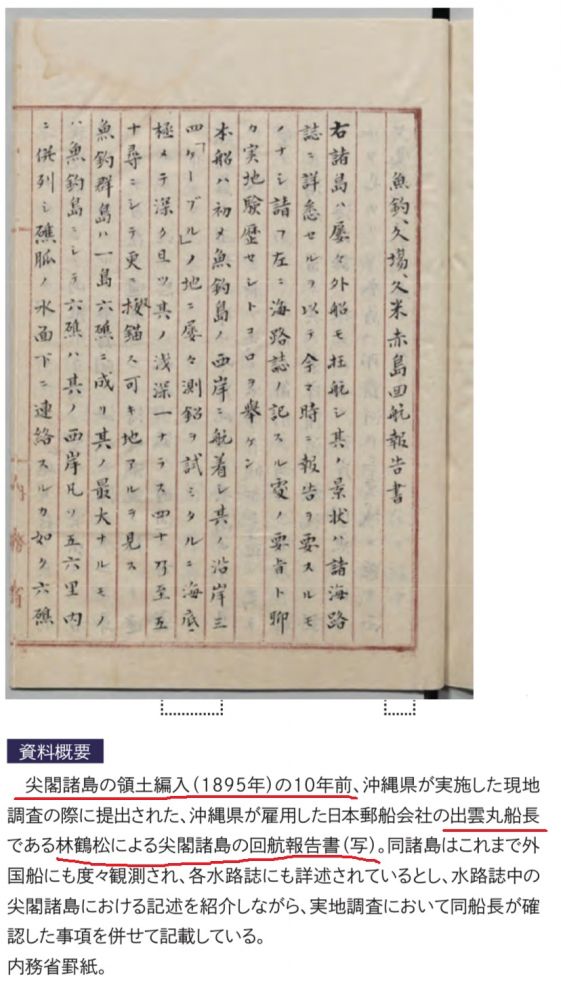 魚釣、久場、久米赤島回航報告書
右諸島ハ屡々外船モ枉航シ其ノ景状ハ諸海路
誌ニ詳悉セルヲ以テ今マ時ニ報告ヲ要スルモ
ノナシ請フ左ニ海路誌ノ記スル処ノ要旨ト聊
カ実地験歴セシトコロヲ挙ケン
本船ハ初メ魚釣島ノ西岸ニ航着シ其ノ沿岸三
四「ケーブル」ノ地ニ屡々測鉛ヲ試ミタルニ海底ハ
極メテ深ク且ツ其ノ浅深一ナラス四十乃至五
十尋ニシテ更ニ投錨ス可キ地アルヲ見ス
魚釣群島ハ一島六礁ニ成リ其ノ最大ナルモノ
ハ魚釣島ニシテ六礁ハ其ノ西岸凡ソ五六里内
ニ併列シ礁脈ノ水面下ニ連絡スルカ如ク六礁
資料概要
尖閣諸島の領土編入（1895年）の10年前、沖縄県が実施した現地
調査の際に提出された、沖縄県が雇用した日本郵船会社の出雲丸船長
である林鶴松による尖閣諸島の回航報告書（写）。同諸島はこれまで外
国船にも度々観測され、各水路誌にも詳述されているとし、水路誌中の
尖閣諸島における記述を紹介しながら、実地調査において同船長が確
認した事項を併せて記載している。
内務省罫紙。